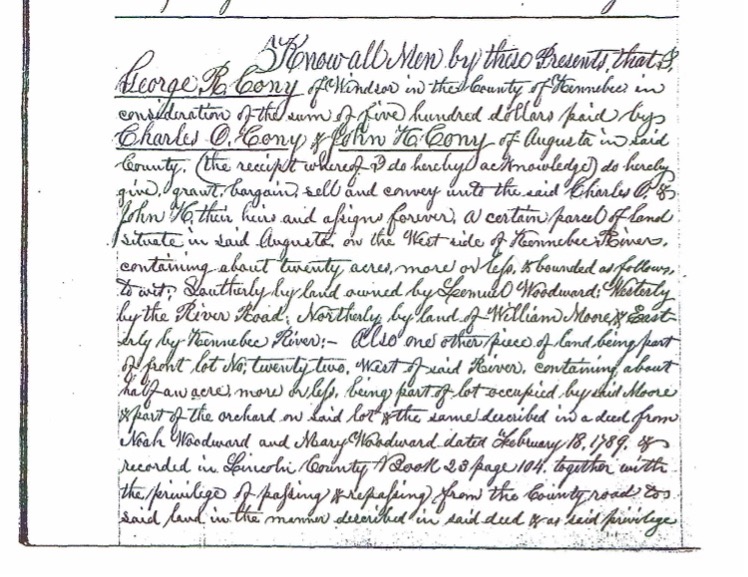 Know all Men by these Presents, that I,
George R. Cony of Windsor in the County of Kennebec in
consideration of the sum of five hundred dollars paid by
Charles O. Cony & John H. Cony of Augusta in said
County, (the receipt whereof I do hereby acknowledge) do hereby
give, grant, bargain, sell and convey unto the said Charles O. &
John H, their heirs and assigns forever, a certain parcel of land
situate in said Augusta, on the West side of Kennebec River,
containing about twenty acres, more or less, & bounded as follows,
to wit; Southerly by land owned by Lemuel Woodward; Westerly
by the River Road; Northerly by land of William Moore, & East-
erly by Kennebec River;- Also one other piece of land being part
of front lot No; twenty two, West of said River, containing about
half an acre, more or less, being part of lot occupied by said Moore
& part of the orchard on said lot & the same described in a deed from
Noah Woodward and Mary Woodward dated February 18, 1789, &
recorded in Lincoln County Book 23 page 104, together with
the privilege of passing & repassing from the County road to
said land in the manner described in said deed & as said privilege